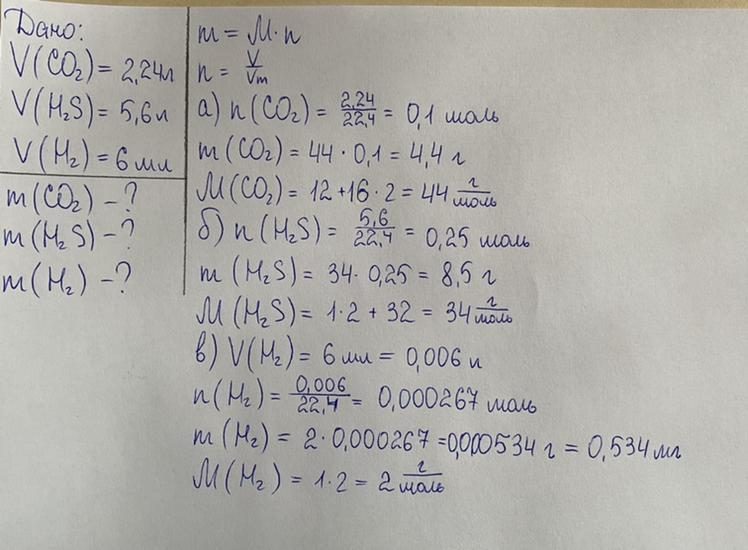 Дано:
V(CO₂) = 2,24л
V(H₂S) = 5,6л
V(H₂) = 6мл
m(CO₂) – ?
m(H₂S) – ?
m(H₂) – ?
m = M·n
n = V/Vm
а) n(CO₂) = 2,24/22,4 = 0,1 моль
m(CO₂) = 44 · 0,1 = 4,4 г
M(CO₂) = 12+16·2 = 44 г/моль
б) n(H₂S) = 5,6/22,4 = 0,25 моль
m(H₂S) = 34 · 0,25 = 8,5 г
M(H₂S) = 1·2 + 32 = 34 г/моль
в) V(H₂) = 6мл = 0,006 л
n(H₂) = 0,006/22,4 = 0,000267 моль
m(H₂) = 2·0,000267 =0,000534 г = 0,534мг
M(H₂) = 1·2 = 2 г/моль